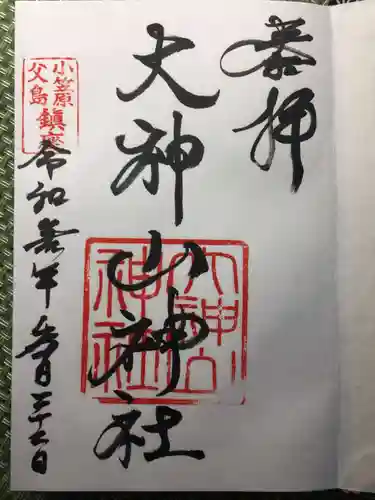 奉拝
大神山神社
大神山
神社
小笠原
父島
鎮座
令和 年 月 日